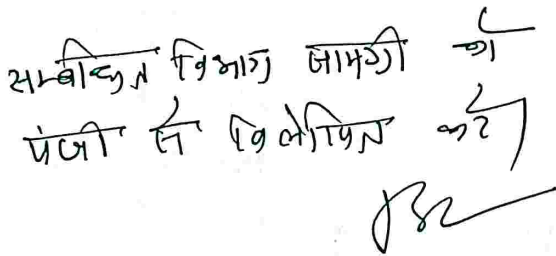 सम्बन्धित विभाग सामग्री को
पंजी से विलोपित करें।